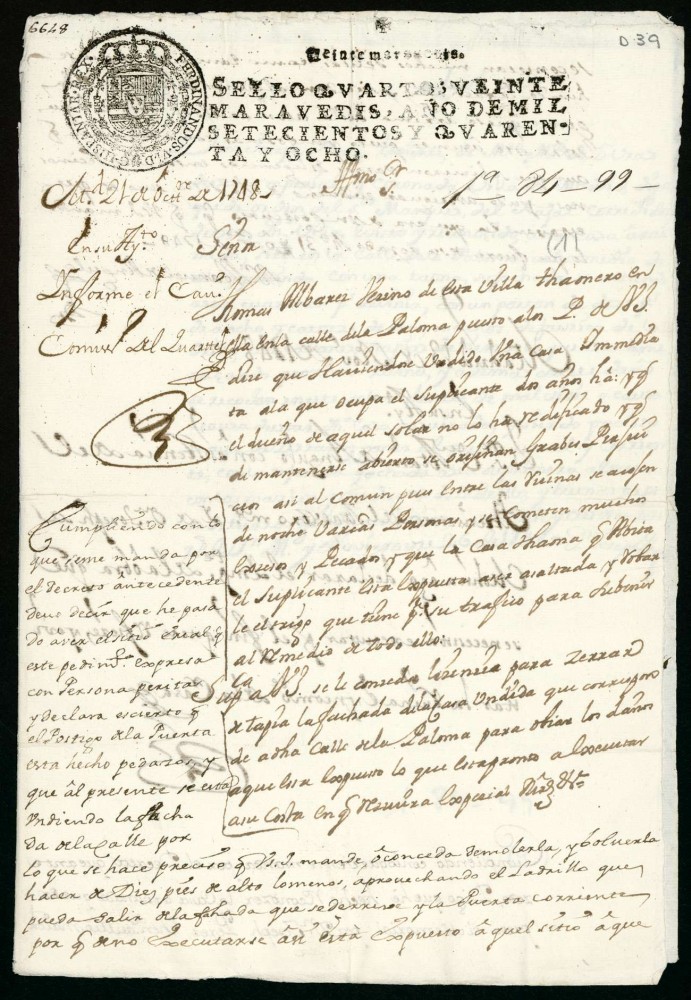 6648
D 39
Veinte maravedis.
FERDINANDUS VI D G HISPANIAR REX
SELLO QVARTO, VEINTE
MARAVEDIS, AÑO DE MIL
SETECIENTOS Y QVAREN-
TA Y OCHO.
21 de de 1748
1ª 84-99-
(1)
En su Ayto
Señor
Informe el Cavo
Comisº del Quartel
Thomas Albarez Vezino de esta Villa thaonero en
ella en la calle dela Paloma puesto alos P. de V.S.
dize que Haviendose Undido Una Casa Ynmedia
ta ala que ocupa el Suplicante dos años ha: y qe
el dueño de aquel solar no lo ha reedificado y qe
de mantenerse abierto se orijinan Grabes Perjui
cios asi al Comun pues entre las Ruinas se
de noche Varias Personas y se cometen muchos
Excesos y Pecados y que la Casa thaona qe Abita
el Suplicante esta Expuesta aser asaltada y Robar
le el trigo que tiene pª su trafico para
al Remedio de todo ello:
Supca a V.S. se le conceda lizencia para Zerrar
de tapia la fachada dela Casa Undida que corresponde
a dha Calle dela Paloma para obiar los daños
aque esta Expuesto lo que esta pronto a Executar
asu Costa en qe Rezivira
Cumpliendo con lo
que se me manda por
el decreto antecedente
devo decir que he pasa
do aver el sitio Erial qe
este pedimto expresa
con Persona perita
y declara es cierto qe
el Postigo dela Puerta
esta hecho pedazos, y
que âl presente se está
undiendo la facha
da de la calle por
lo que se hace preciso qe V.S. mande, ô conceda demolerla, y bolverla
hacer de Diez pies de alto lo menos, aprovechando el Ladrillo que
pueda salir dela fachada que se derrive y la Puerta corriente
por qe de no Executarse âsi está expuesto âquel sitio â que